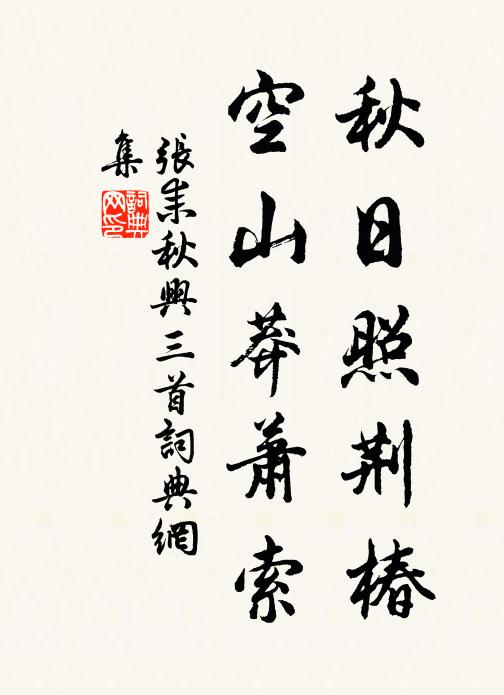 秋日照荆椿
空山莽萧索
張耒秋興三首詞典網
集
詞典
网印